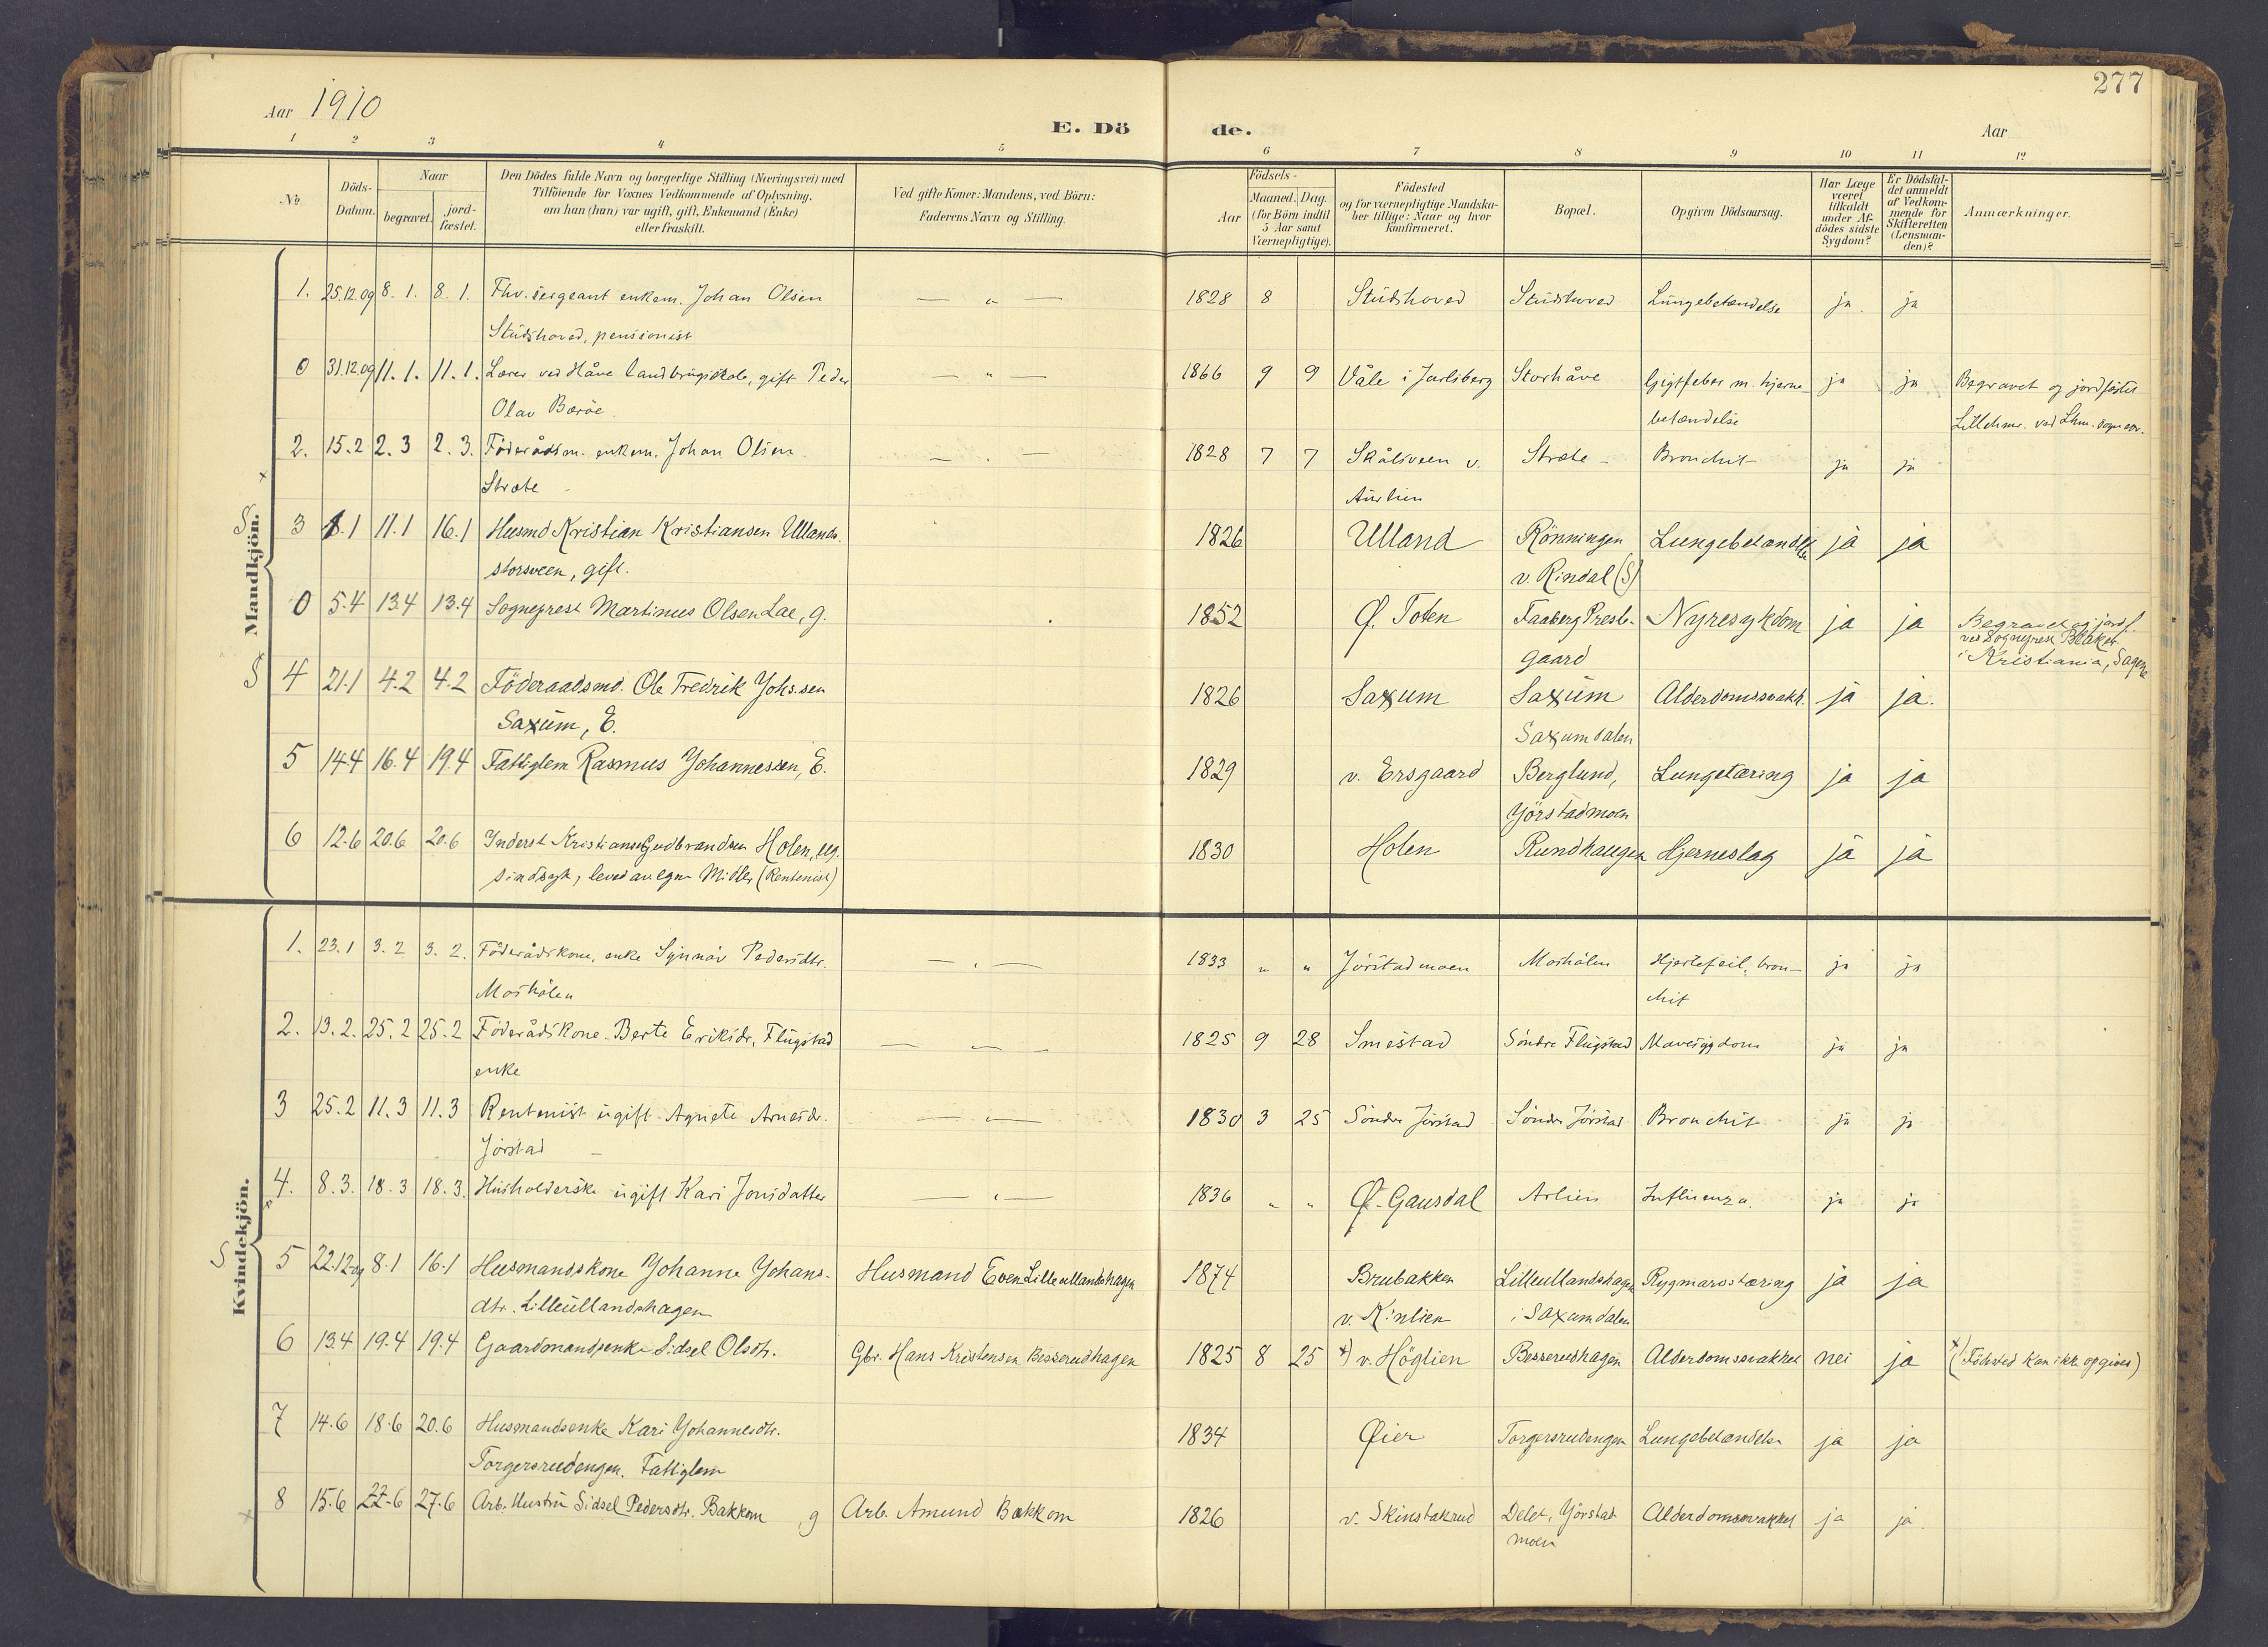 277
Aar 1910
E. Dö
de.
Aar
1 2 3 4 5 6 7 8 9 10 11 12
№
Döds-
Datum.
Naar
begravet.
jord-
fæstet.
Den Dödes fulde Navn og borgerlige Stilling (Næringsvei) med
Tilföiende for Voxnes Vedkommende af Oplysning,
om han (hun) var ugift, gift, Enkemand (Enke)
eller fraskilt.
Ved gifte Koner: Mandens, ved Börn:
Faderens Navn og Stilling.
Födsels-
Aar
Maaned. Dag.
(for Börn indtil
5 Aar samt
Værnepligtige).
Födested
og for værnepligtige Mandska-
ber tillige: Naar og hvor
konfirmeret.
Bopæl.
Opgiven Dödsaarsag.
Har Læge
været
tilkaldt
under Af-
dödes sidste
Sygdom?
Er Dödsfal-
det anmeldt
af Vedkom-
mende for
Skifteretten
(Lensman-
den)?
Anmærkninger.
Mandkjön.
1. 25.12.09 8. 1. 8. 1. Fhv. sergeant enkem. Johan Olsen — „ — 1828 8 Studshoved Studshoved Lungebetændelse ja. ja
Studshoved, pensionist
0 31.12.09 11. 1. 11. 1. Lærer ved Håve landbrugsskole, gift Peder — „ — 1866 9 9 Våle i Jarlsberg Storhåve Gigtfeber m. hjerne- ja ja Begravet og jordfæstet
Olav Bærøe. betændelse Lillehmr. ved Lhm. sogne
2. 15.2 2. 3 2. 3. Föderådsm. enkem. Johan Olsen — „ — 1828 7 7 Skålsveen v. Stræte - Bronchit ja ja
Stræte
S 3 8.1 11.1 16.1 Husmd Kristian Kristiansen Ullands. 1826 Ulland Rönningen Lungebetændelse ja ja
storsveen, gift. v. Rindal (S)
0 5.4 13.4 13.4 Sogneprest Martinus Olsen Lae, g. 1852 Ø. Toten Faaberg Preste- Nyresykdom ja ja Begravet og jordf.
gaard ved Sogneprest Blaker
i Kristiania, Sagene
S 4 21.1 4.2 4.2 Föderaadsmd. Ole Fredrik Johs.sen 1826 Saxum Saxum Alderdomssvakh. ja ja.
Saxum, E. Saxumdalen
5 14.4 16.4 19.4 Fattiglem Rasmus Johannessen, E. 1829 v. Ersgaard Berglund, Lungetæring ja ja
Jörstadmoen
6 12.6 20.6 20.6 Inderst Kristian Gudbrandsen Holen, ug. 1830 Holen Rundhaugen Hjerneslag ja ja
sindssyk, leved av egne Midler (Rentenist)
Kvindekjön.
1. 23.1 3. 2 3. 2. Föderådskone, enke Synnöv Pedersdtr. — „ — 1833 „ „ Jörstadmoen Moshölen Hjertefeil, bron- ja ja
Moshölen chit
2. 13.2. 25.2 25.2 Föderådskone Berte Eriksdr. Flugstad — „ — 1825 9 28 Smestad Söndre Flugstad Mavesygdom ja ja
enke
3 25.2 11.3 11.3 Rentenist ugift Agnete Arnesdr. — „ — 1830 3 25 Söndre Jörstad Söndre Jörstad Bronchit ja ja
Jörstad
4. 8.3. 18.3 18.3. Husholderske ugift Kari Jonsdatter — „ — 1836 „ „ Ø. Gausdal Arlien Influenza. ja ja
S 5 22.12.09 8.1 16.1 Husmandskone Johanne Johans- Husmand Even Lilleullandshagen 1874 Brubakken Lilleullandshagen Rygmarvstæring ja ja
dtr. Lilleullandshagen v. Kinlien i Saxumdalen
6 13.4 19.4 19.4 Gaardmandsenke Sidsel Olsdtr. Gbr. Hans Kristensen Besserudhagen 1825 8 25 *) v. Höglien Besserudhagen Alderdomssvakhet nei ja *) (Födested kan ikke opgives)
7 14.6 18.6 20.6 Husmandsenke Kari Johannesdtr. 1834 Øier Torgersrudengen Lungebetændelse ja ja
Torgersrudengen. Fattiglem
8 15.6 22.6 27.6 Arb. Hustru Sidsel Pedersdtr. Bakkom, g Arb. Amund Bakkom 1826 v. Skinstakrud Delet, Jörstad Alderdomssvakhet ja ja.
moen